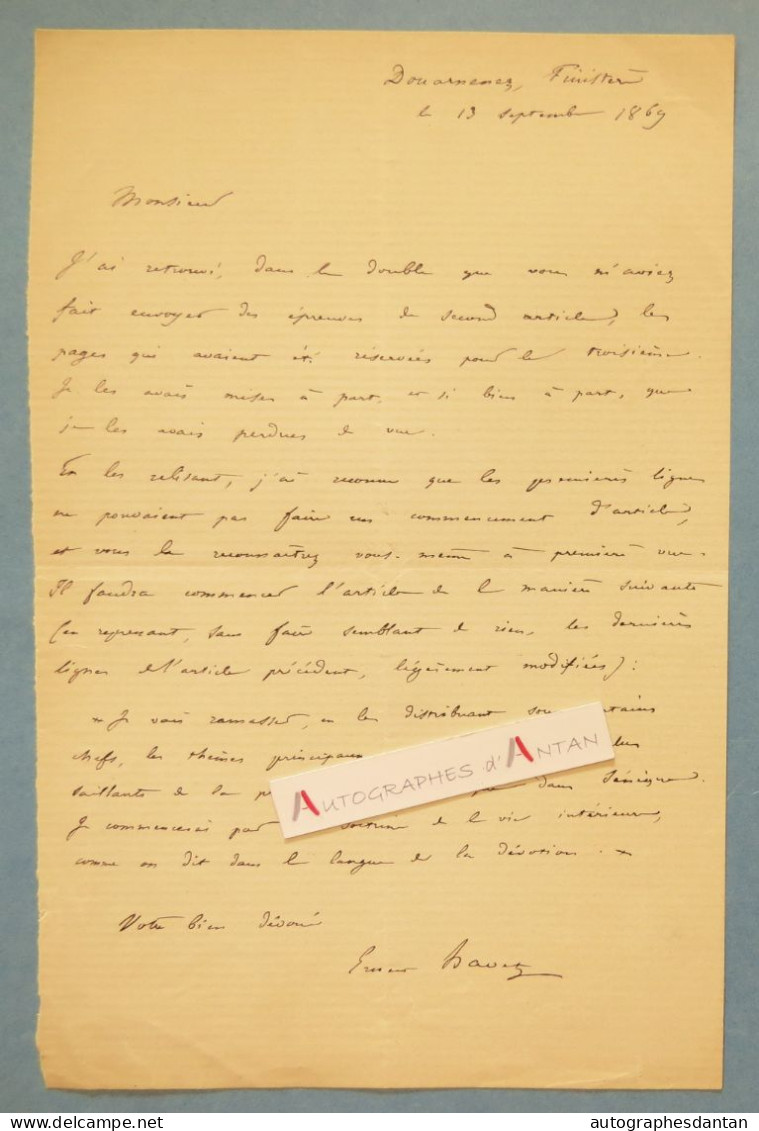 Douarnenez, Finistère
le 13 septembre 1869
Monsieur
J'ai retrouvé, dans le double que vous m'aviez
fait envoyer des épreuves du second article, les
pages qui avaient été réservées pour le troisième.
Je les avais mises à part, et si bien à part, que
je les avais perdues de vue.
En les relisant, j'ai reconnu que les premières lignes
ne pouvaient pas faire un commencement d'article,
et vous le reconnaîtrez vous-même à première vue.
Il faudra commencer l'article de la manière suivante
(en reprenant, sans faire semblant de rien, les dernières
lignes de l'article précédent, légèrement modifiées) :
« Je vais ramasser, en les distribuant sous certains
chefs, les thèmes principaux
saillants de la dans Sénèque.
Je commencerai par doctrine de la vie intérieure,
comme on dit dans la langue de la dévotion. »
AUTOGRAPHES d'ANTAN
Votre bien dévoué
Ernest Havet
autographesdantan